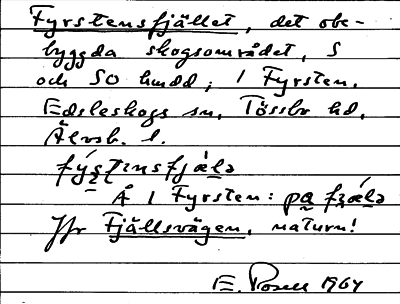 Fyrstensfjället, det obe-
byggda skogsområdet, S
och SO hmdd; i Fyrsten,
Edsleskogs sn, Tössbo hd,
Älvsb. l.
Å i Fyrsten: pa
Jfr Fjällsvägen, naturn!
E. 1964